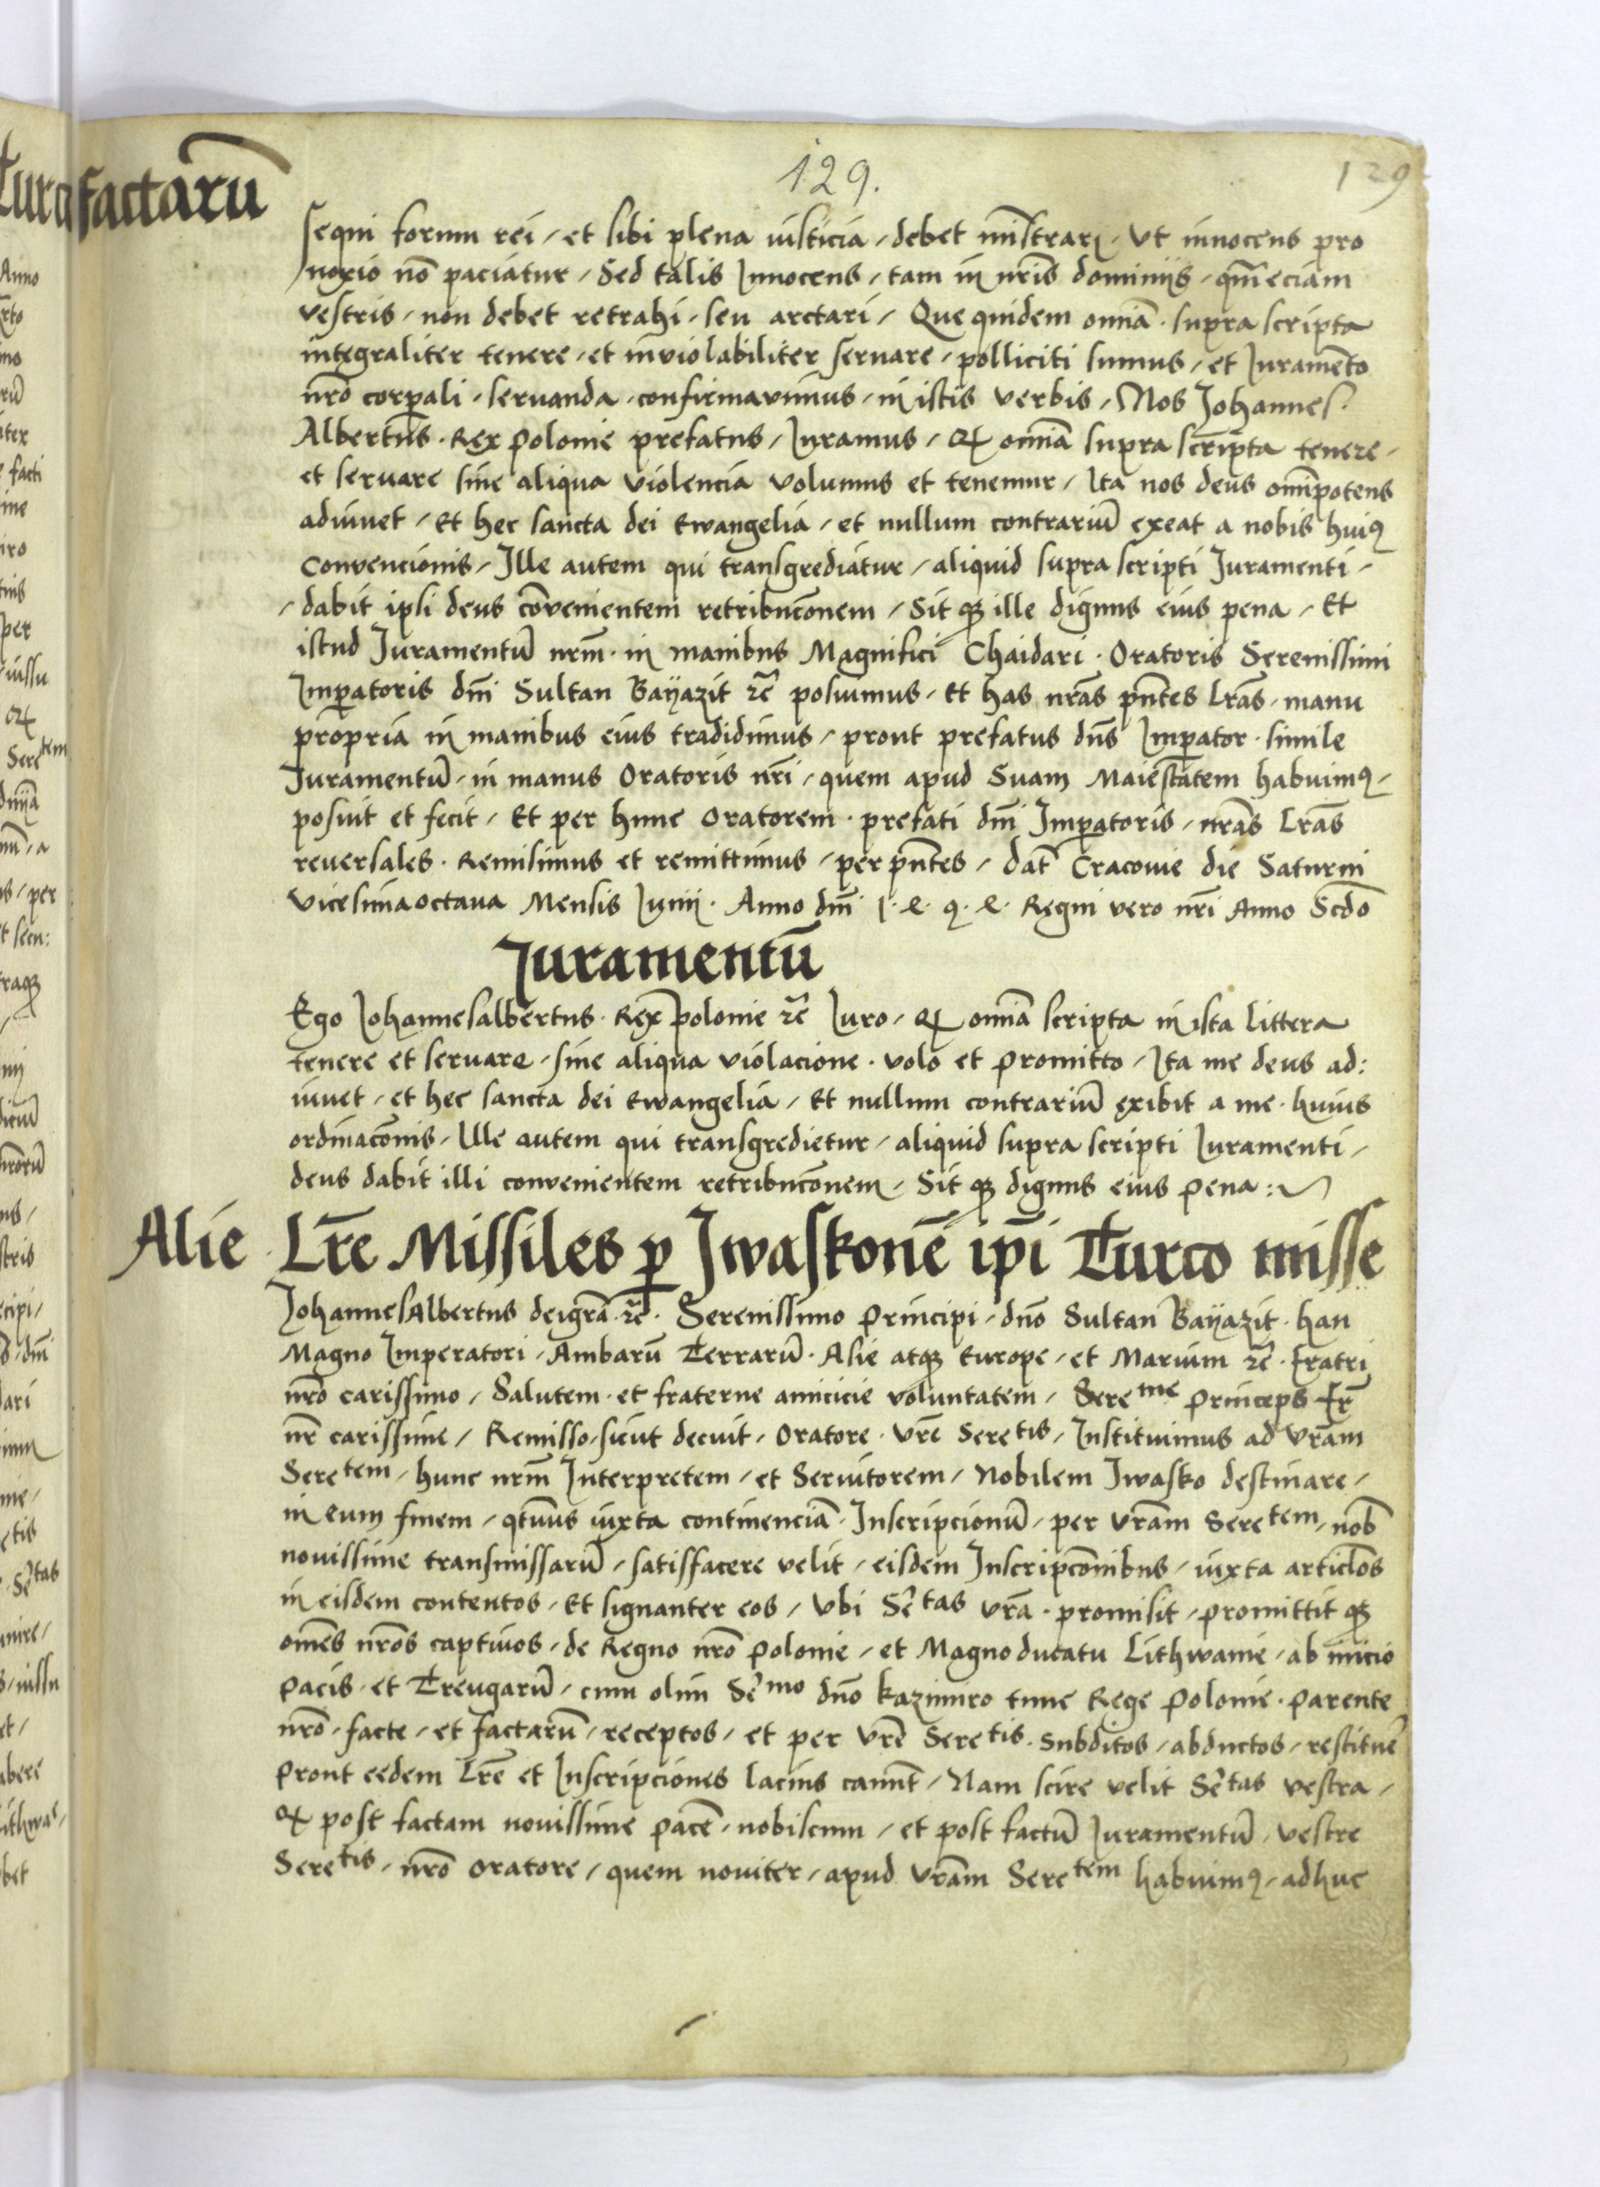 129.
129
factarū
sequi forum rei / et sibi plena iusticia / debet mīstrari / Vt innocens pro
noxio nō paciatur / Sed talis Innocens / tam in nr̄is dominijs / qm̄ eciam
vestris / non debet retrahi / seu arctari / Que quidem om̄ia supra scripta
integraliter tenere / et inviolabiliter seruare / polliciti sumus / et Iuramēto
nr̄o corp̱ali / seruanda / confirmavimus / in istis verbis / Nos Johannes
Albertus Rex Polonie prefatus / Iuramus / ꝙ om̄ia supra scripta tenere /
et servare sine aliqua violencia volumus et tenemur / Ita nos deus om̄ipotens
adiuuet / Et hec sancta dei Ewangelia / et nullum contrariū exeat a nobis huiꝰ
Convencionis / Ille autem qui transgrediatur / aliquid supra scripti Juramenti /
/ dabit ipsi deus cōvenientem retribuc̄onem / Sit qꝫ ille dignus eius pena / Et
istud Juramentū nrm̄ in manibus Magnifici Chaidari Oratoris Serenissimi
Imp̱atoris dm̄i Sultan Bayazit rc̄ posuimus / Et has nr̄as pn̄tes lr̄as / manu
propria in manibus eius tradidimus / prout prefatus dn̄s Imp̱ator simile
Juramentū / in manus Oratoris nr̄i / quem apud Suam Maiestatem habuimꝰ /
posuit et fecit / Et per hunc Oratorem prefati dm̄i Imp̱atoris / nr̄as Lr̄as
reuersales Remisimus et remittimus / per pn̄tes / dat̄ Cracovie die Saturni
vicesimaoctaua Mensis Iunij Anno dm̄ 1·4·9·4· Regni vero nr̄i Anno Scd̄o
Juramentū
Ego Johannesalbertus Rex Polonie rc̄ Iuro / ꝙ om̄ia scripta in ista littera
tenere et servare / sine aliqua violacione volo et promitto / Ita me deus ad:
iuuet / et hec sancta dei Ewangelia / Et nullum contrariū exibit a me huius
ordinac̄onis / Ille autem qui transgredietur / aliquid supra scripti Iuramenti /
deus dabit illi convenientem retribuc̄onem / Sit qꝫ dignus eius pena :
Alie Lr̄e Missiles ꝑ Jwaskonē ip̄i Turco misse
JohannesAlbertus deigr̄a rc̄ Serenissimo Principi / dn̄o Sultan Bayazit han
Magno Imperatori / Ambarū Terrarū Asie atqꝫ Europe / et Marium rc̄ Fratri
nr̄o carissimo / Salutem et fraterne amicicie voluntatem / Sereme Princeps Fr̄
nr̄ carissime / Remisso sicut decuit / Oratore Vr̄e Seretis / Instituimus ad Vr̄am
Seretem / hunc nrm̄ Interpretem / et Seruitorem / Nobilem Jwasko destinare /
in eum finem / qt̄nus iuxta continenciā Inscripcionū / per Vr̄am Seretem / nob̄
nouissime transmissarū / satisfacere velit / eisdem Inscripc̄onibus / iuxta articlos
in eisdem contentos / Et signanter eos / Vbi Sēr̄tas Vr̄a promisit / promittit qꝫ
om̄es nr̄os captiuos / de Regno nr̄o Polonie / et Magnoducatu Lithwanie / ab inicio
Pacis et Treugarū / cum olim Sēr̄mo dn̄o Kazimiro tunc Rege Polonie Parente
nr̄o / facte / et factarū / receptos / et per Vr̄e Seretis Subditos / abductos / restituer̄
Prout eedem Lr̄e et Inscripciones lacius canūt / Nam scire velit Sēr̄tas vestra /
ꝙ post factam nouissime pacē / nobiscum / et post factū Iuramentū / vestre
Seretis / nr̄o oratore / quem noviter / apud Vr̄am Seretem habuimꝰ / adhuc